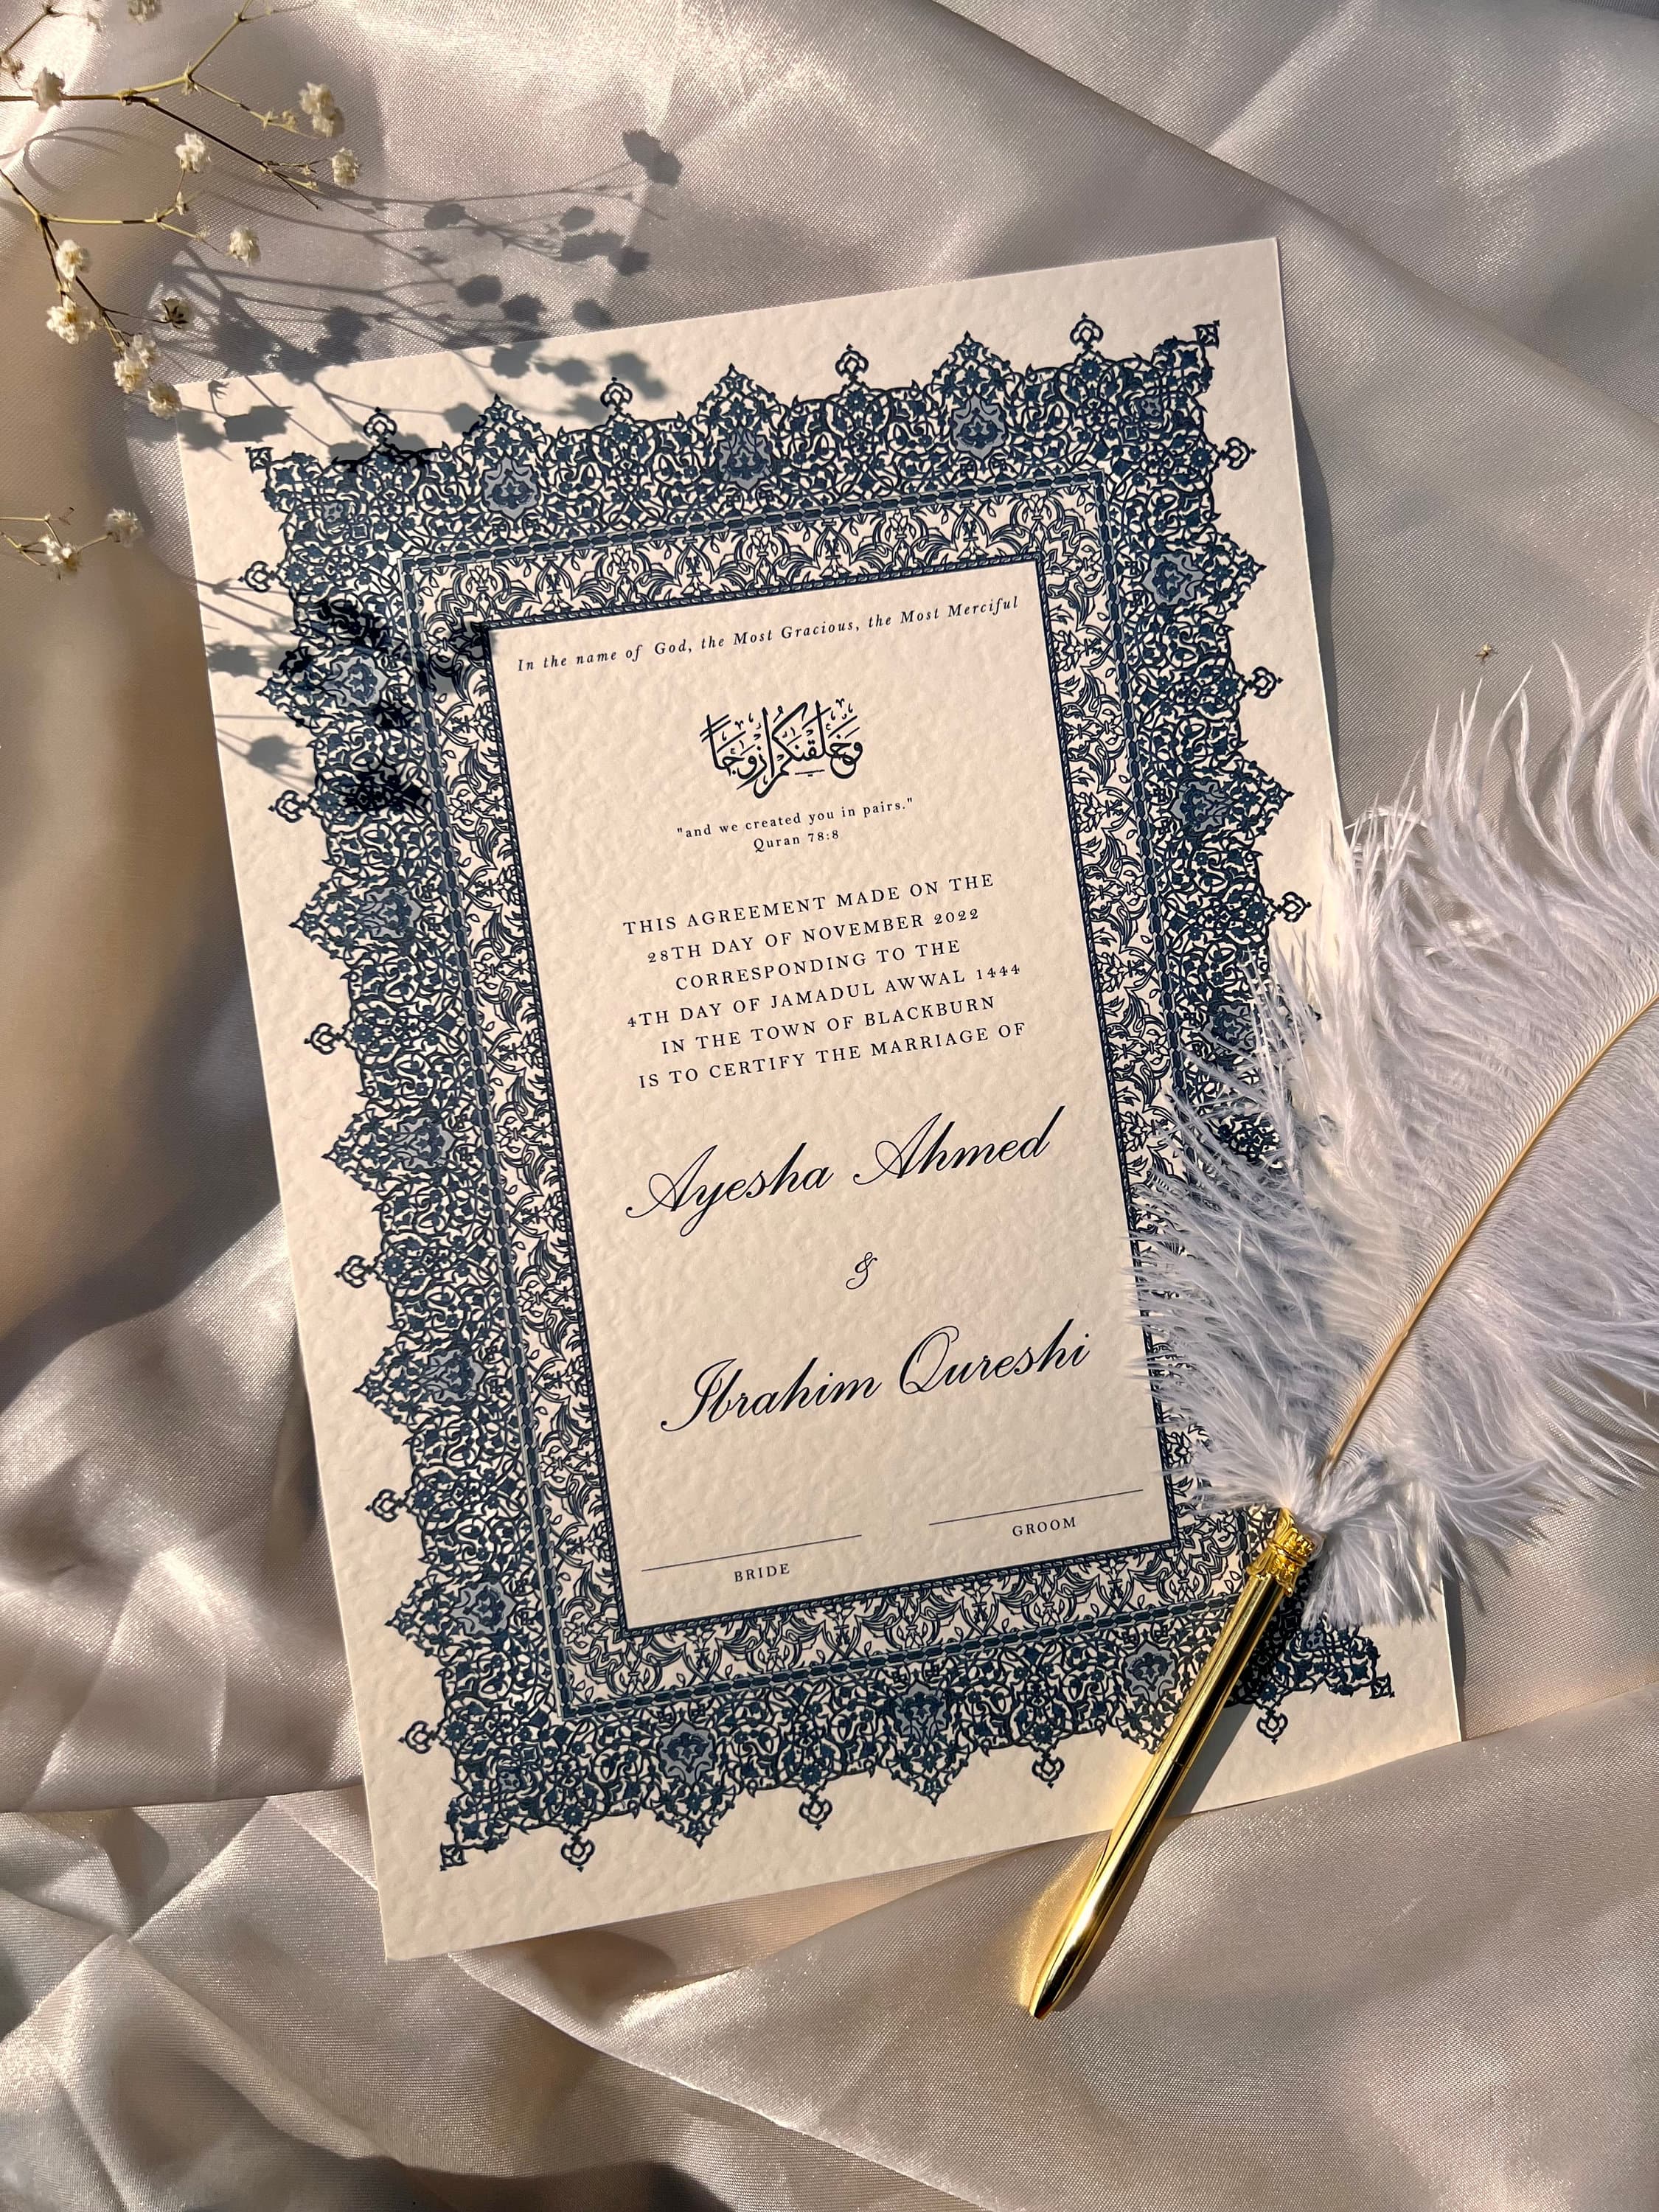 In the name of God, the Most Gracious, the Most Merciful
وَخَلَقْنَٰكُمْ أَزْوَٰجًا
"and we created you in pairs."
Quran 78:8
THIS AGREEMENT MADE ON THE
28TH DAY OF NOVEMBER 2022
CORRESPONDING TO THE
4TH DAY OF JAMADUL AWWAL 1444
IN THE TOWN OF BLACKBURN
IS TO CERTIFY THE MARRIAGE OF
Ayesha Ahmed
&
Ibrahim Qureshi
BRIDE GROOM